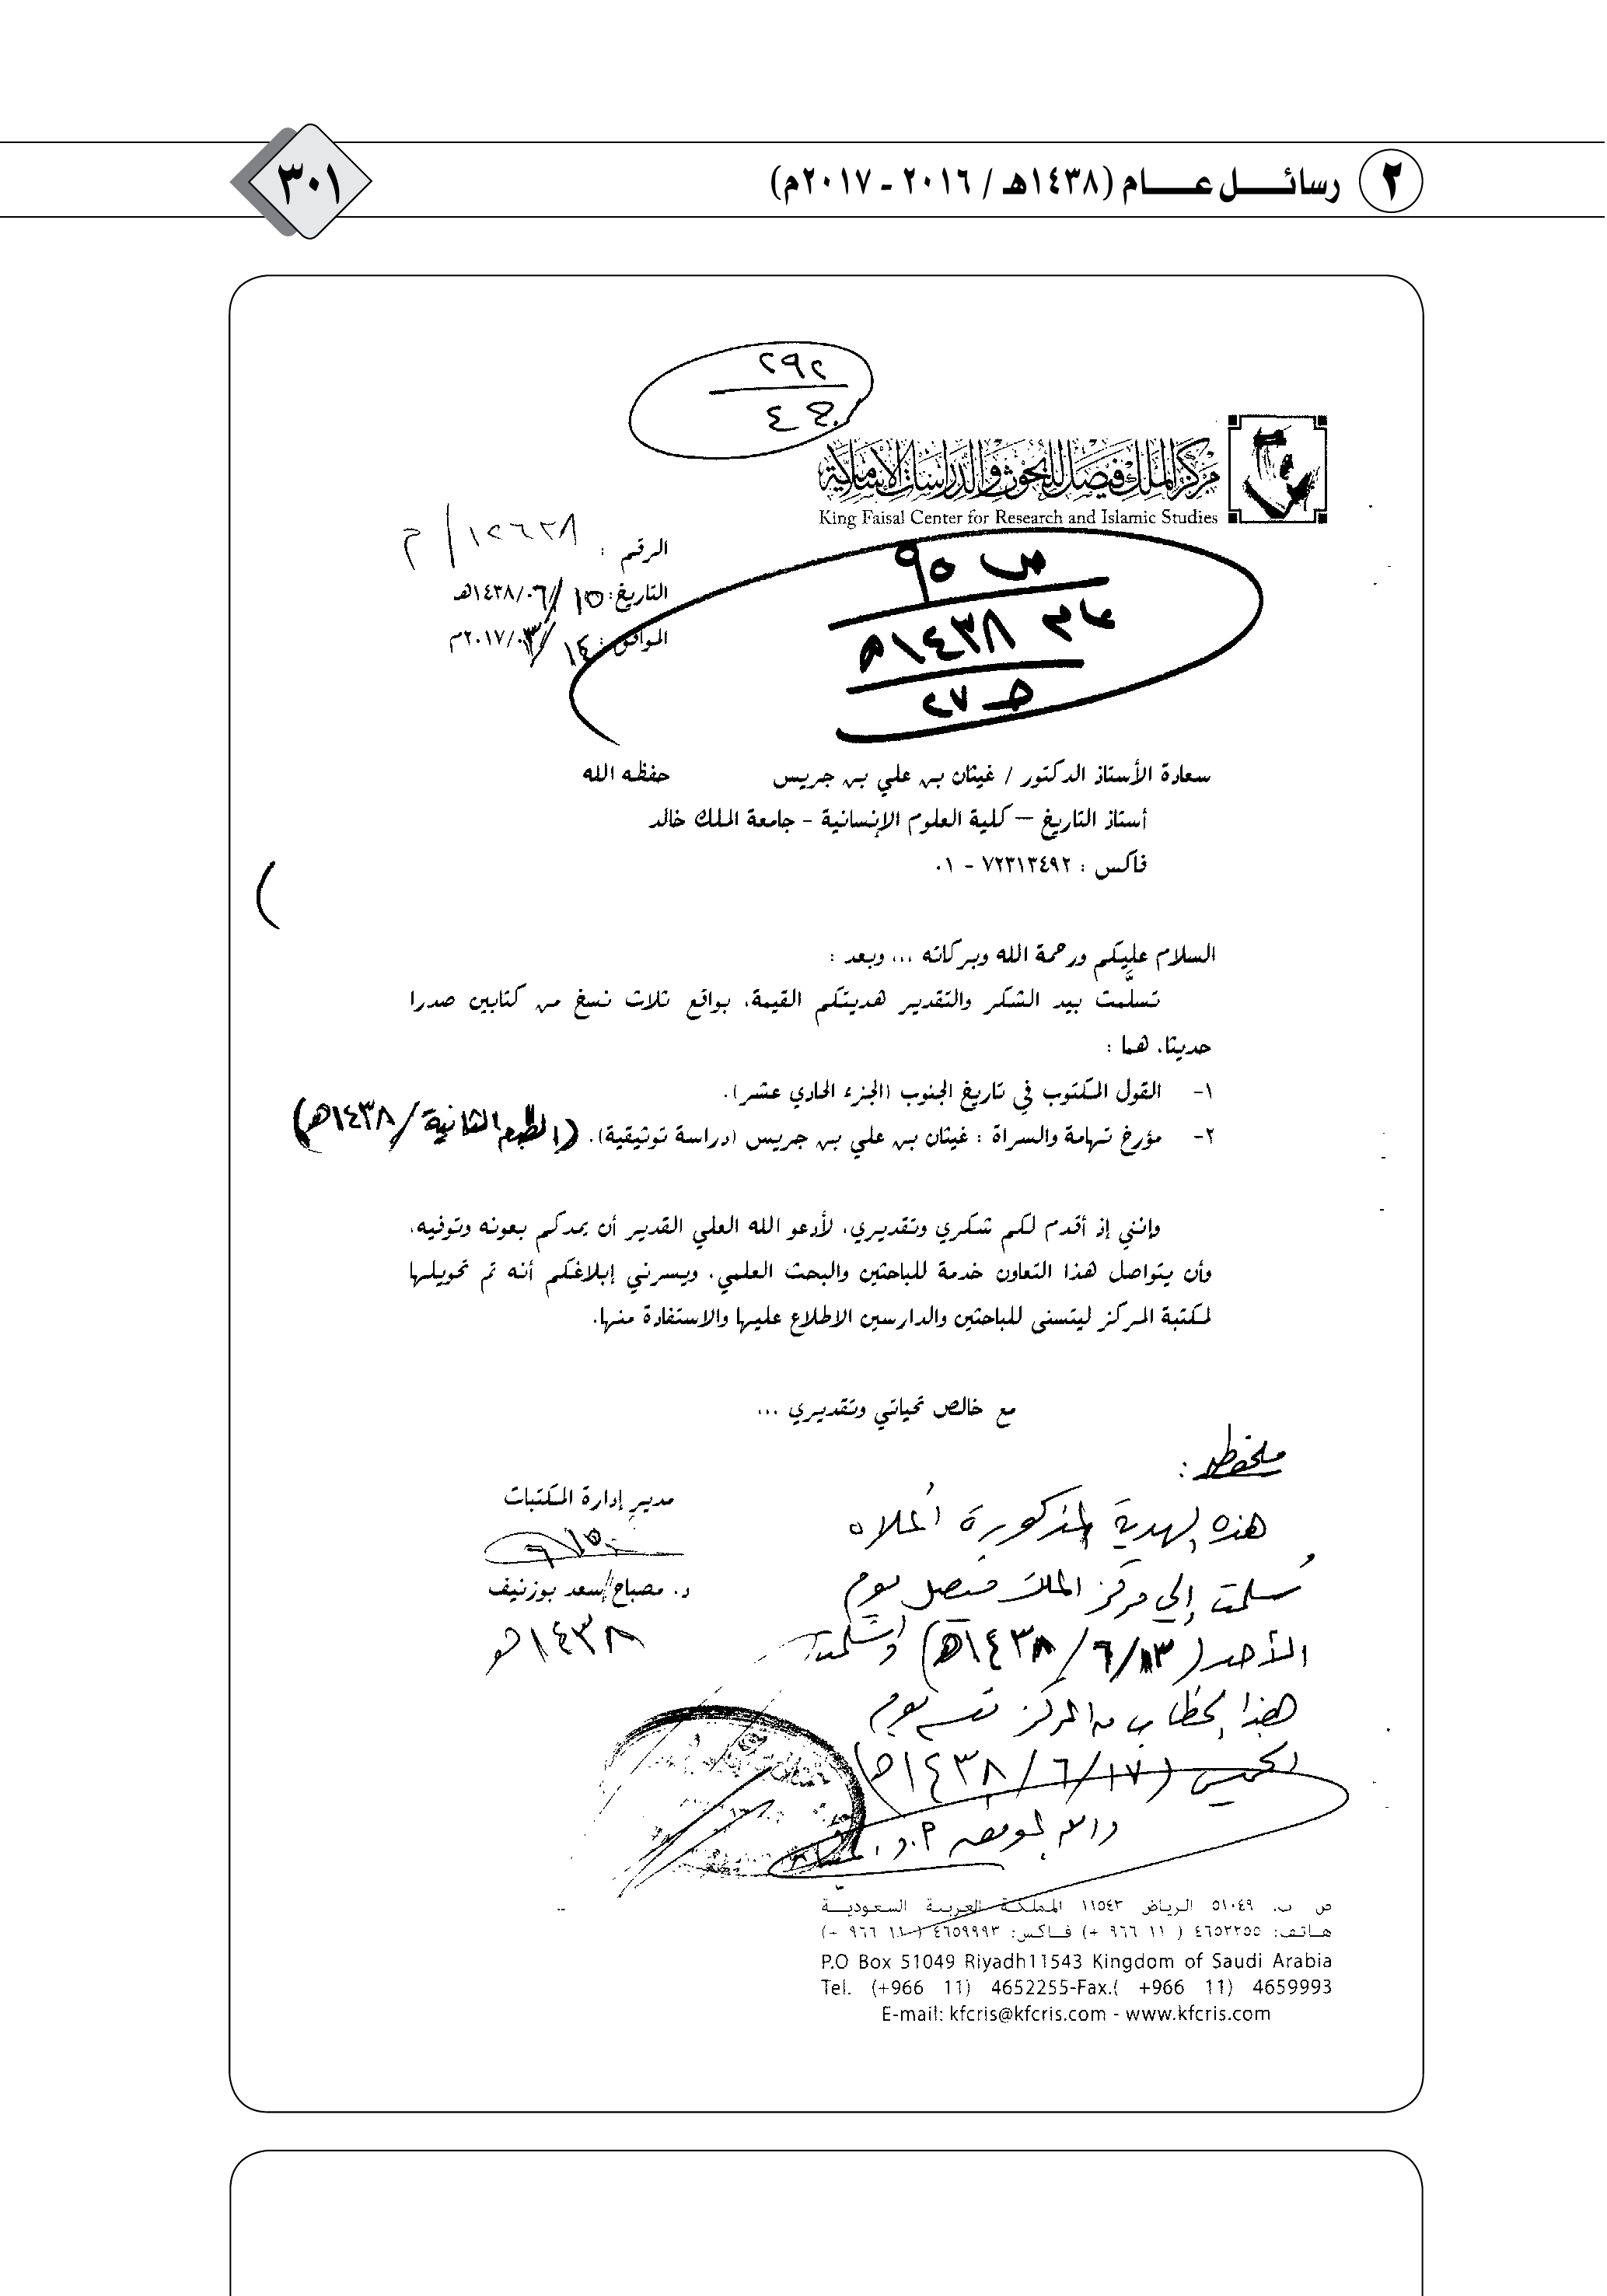 ٢ رسائل عام (١٤٣٨هـ / ٢٠١٦ ـ ٢٠١٧م)
٣٠١
٢٩٢
ج ٤
مركز الملك فيصل للبحوث والدراسات الإسلامية
King Faisal Center for Research and Islamic Studies
الرقم : ١٢٦٢٨/م
التاريخ: ١٥/٠٦/١٤٣٨هـ
الموافق : ١٤/٠٣/٢٠١٧م
ص ٩٥
عام ١٤٣٨هـ
حـ ٢٧
سعادة الأستاذ الدكتور / غيثان بن علي بن جريس حفظه الله
أستاذ التاريخ – كلية العلوم الإنسانية - جامعة الملك خالد
فاكس : ٧٢٣١٣٤٩٢ - ٠١
السلام عليكم ورحمة الله وبركاته ... وبعد :
تسلَّمت بيد الشكر والتقدير هديتكم القيمة، بواقع ثلاث نسخ من كتابين صدرا
حديثا، هما :
١- القول المكتوب في تاريخ الجنوب (الجزء الحادي عشر).
٢- مؤرخ تهامة والسراة : غيثان بن علي بن جريس (دراسة توثيقية). (الطبعة الثانية/١٤٣٨هـ)
وإنني إذ أقدم لكم شكري وتقديري، لأدعو الله العلي القدير أن يمدكم بعونه وتوفيه،
وأن يتواصل هذا التعاون خدمة للباحثين والبحث العلمي، ويسرني إبلاغكم أنه تم تحويلها
لمكتبة المركز ليتسنى للباحثين والدارسين الاطلاع عليها والاستفادة منها.
مع خالص تحياتي وتقديري ...
مدير إدارة المكتبات
٦/١٥
د. مصباح/سعد بوزنيف
١٤٣٨هـ
ملحوظة :
هذه الهدية المذكورة أعلاه
سُلمت إلى مركز الملك فيصل يوم
الأحد (١٣/٦/١٤٣٨هـ) واستلمت
هذا الخطاب من المركز نفسه يوم
الخميس (١٧/٦/١٤٣٨هـ)
والله الموفق
ص ب. ٥١٠٤٩ الرياض ١١٥٤٣ المملكة العربية السعودية
هاتف: ٤٦٥٢٢٥٥ ( ١١ ٩٦٦ +) فاكس: ٤٦٥٩٩٩٣ ( ١١ ٩٦٦ +)
P.O Box 51049 Riyadh11543 Kingdom of Saudi Arabia
Tel. (+966 11) 4652255-Fax.( +966 11) 4659993
E-mail: kfcris@kfcris.com - www.kfcris.com